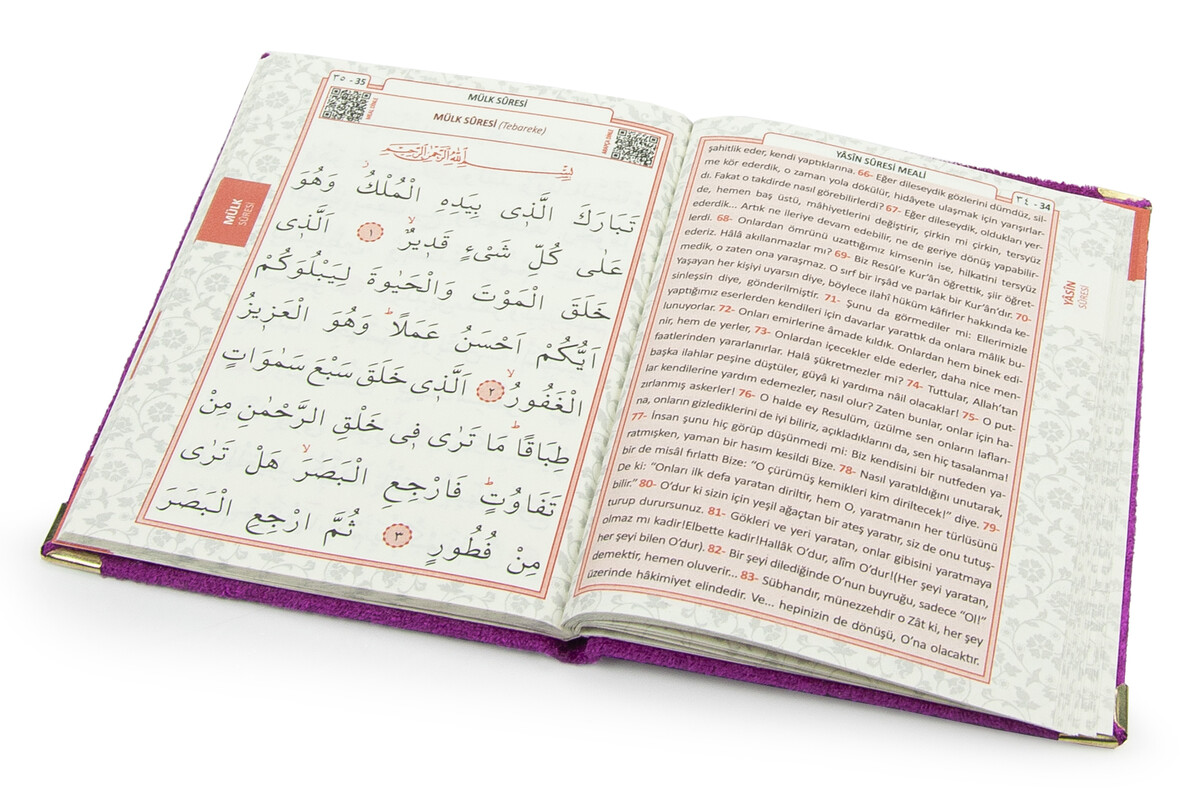 ٣٥ - 35
MÜLK SÛRESİ
MÜLK SÛRESİ (Tebareke)
بِسْمِ اللّٰهِ الرَّحْمٰنِ الرَّحٖيمِ
تَبَارَكَ الَّذٖى بِيَدِهِ الْمُلْكُ وَهُوَ
عَلٰى كُلِّ شَىْءٍ قَدٖيرٌ ﴿١﴾ اَلَّذٖى
خَلَقَ الْمَوْتَ وَالْحَيٰوةَ لِيَبْلُوَكُمْ
اَيُّكُمْ اَحْسَنُ عَمَلًا وَهُوَ الْعَزٖيزُ
الْغَفُورُ ﴿٢﴾ اَلَّذٖى خَلَقَ سَبْعَ سَمٰوَاتٍ
طِبَاقًا مَا تَرٰى فٖى خَلْقِ الرَّحْمٰنِ مِنْ
تَفَاوُتٍ فَارْجِعِ الْبَصَرَ هَلْ تَرٰى
مِنْ فُطُورٍ ﴿٣﴾ ثُمَّ ارْجِعِ الْبَصَرَ
MÜLK
SÛRESİ
YÂSÎN SÛRESİ MEALİ
٣٤ - 34
şahitlik eder, kendi yaptıklarına. 66- Eğer dileseydik gözlerini dümdüz, sil-
me kör ederdik, o zaman yola dökülür, hidâyete ulaşmak için yarışırlar-
dı. Fakat o takdirde nasıl görebilirlerdi? 67- Eğer dileseydik, oldukları yer-
de, hemen baş üstü, mahiyetlerini değiştirir, çirkin mi çirkin, tersyüz
ederdik... Artık ne ileriye devam edebilir, ne de geriye dönüş yapabilir-
lerdi. 68- Onlardan ömrünü uzattığımız kimsenin ise, hilkatini tersyüz
ederiz. Hâlâ akıllanmazlar mı? 69- Biz Resûl'e Kur'ân öğrettik, şiir öğret-
medik, o zaten ona yaraşmaz. O sırf bir irşâd ve parlak bir Kur'ân'dır. 70-
Yaşayan her kişiyi uyarsın diye, böylece ilahî hüküm kâfirler hakkında ke-
sinleşsin diye, gönderilmiştir. 71- Şunu da görmediler mi: Ellerimizle
yaptığımız eserlerden kendileri için davarlar yarattık da onlara mâlik bu-
lunuyorlar. 72- Onları emirlerine âmade kıldık. Onlardan hem binek edi-
nir, hem de yerler, 73- Onlardan içecekler elde ederler, daha nice men-
faatlerinden yararlanırlar. Halâ şükretmezler mi? 74- Tuttular, Allah'tan
başka ilahlar peşine düştüler, güyâ ki yardıma nâil olacaklar! 75- O put-
lar kendilerine yardım edemezler, nasıl olur? Zaten bunlar, onlar için ha-
zırlanmış askerler! 76- O halde ey Resulüm, üzülme sen onların lafları-
na, onların gizlediklerini de iyi biliriz, açıkladıklarını da, sen hiç tasalanma!
77- İnsan şunu hiç görüp düşünmedi mi: Biz kendisini bir nutfeden ya-
ratmışken, yaman bir hasım kesildi Bize. 78- Nasıl yaratıldığını unutarak,
bir de misâl fırlattı Bize: "O çürümüş kemikleri kim diriltecek!" diye. 79-
De ki: "Onları ilk defa yaratan diriltir, hem O, yaratmanın her türlüsünü
bilir." 80- O'dur ki sizin için yeşil ağaçtan bir ateş yaratır, siz de onu tutuş-
turup durursunuz. 81- Gökleri ve yeri yaratan, onlar gibisini yaratmaya
olmaz mı kadir!Elbette kadir!Hallâk O'dur, alîm O'dur!(Her şeyi yaratan,
her şeyi bilen O'dur). 82- Bir şeyi dilediğinde O'nun buyruğu, sadece "Ol!"
demektir, hemen oluverir... 83- Sübhandır, münezzehdir o Zât ki, her şey
üzerinde hâkimiyet elindedir. Ve... hepinizin de dönüşü, O'na olacaktır.
YÂSÎN
SÛRESİ